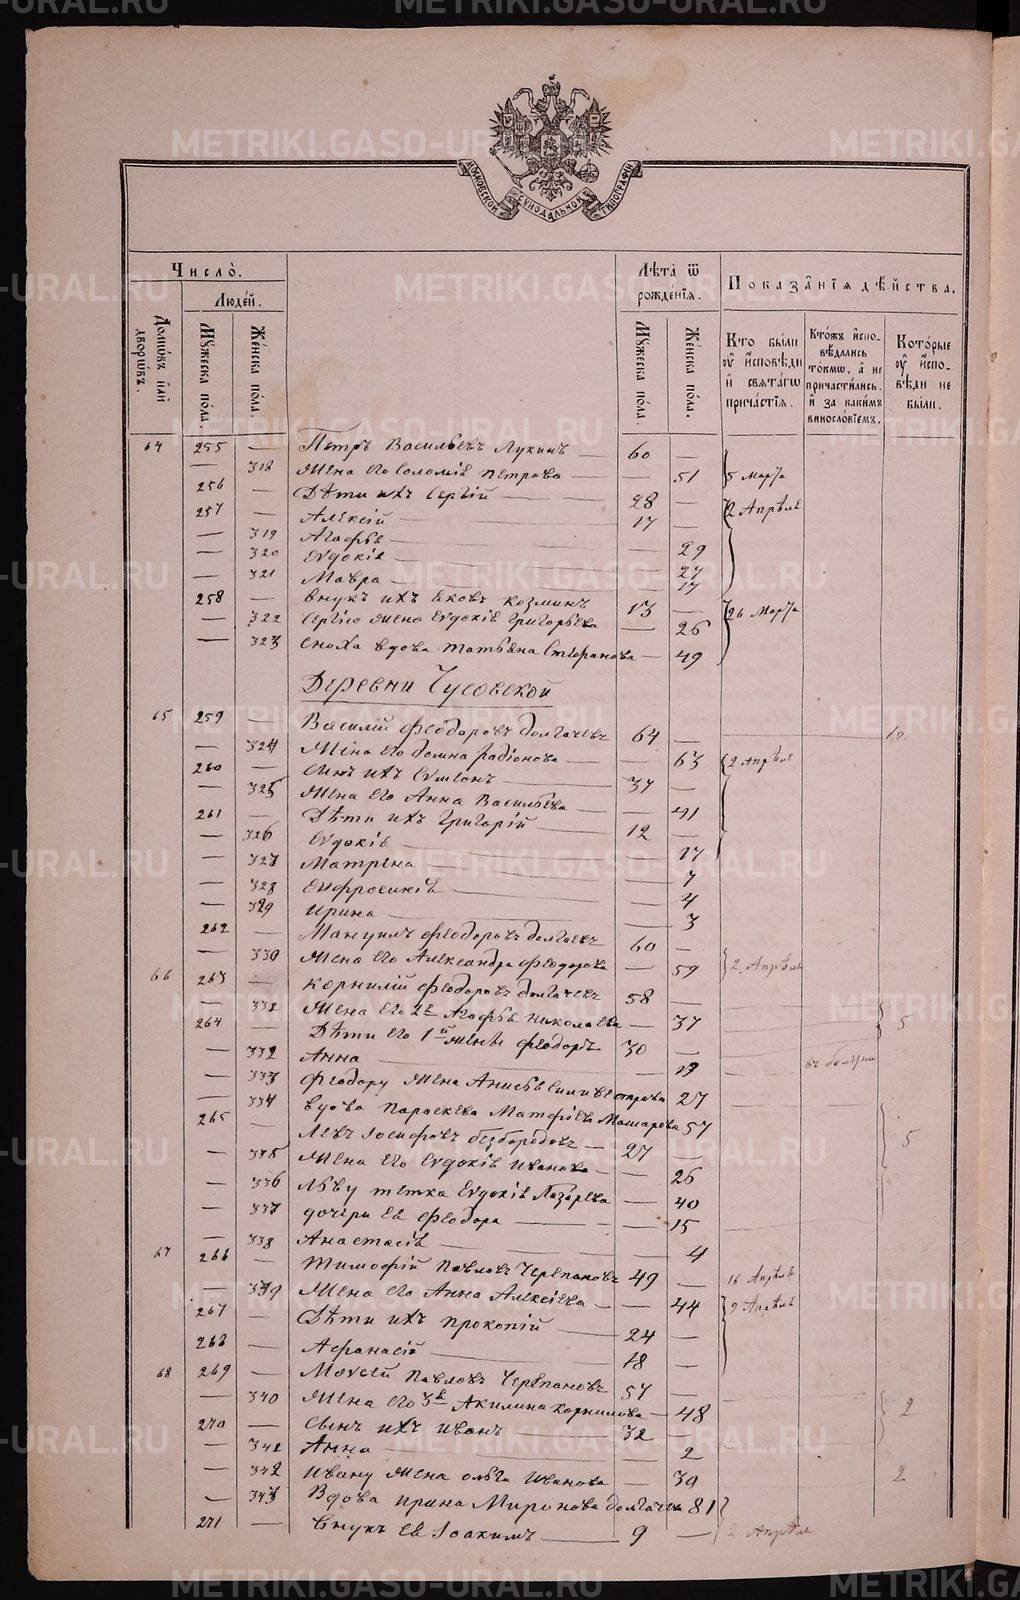 МОСКОВСКОЙ СѴНОДАЛЬНОЙ ТИПОГРАФІИ
Число̀.
Людей.
Домѡвъ и҆лѝ дворѡвъ.
Мꙋжеска по́ла.
Же́нска по́ла.
Лѣта̀ ѿ рожде́нїѧ.
Мꙋжеска по́ла.
Же́нска по́ла.
Показа̑нїѧ дѣ́йства.
Кто бы́ли ᲂу҆ и҆сповѣ́ди и҆ свѧта́гѡ причастїѧ.
Кто́жъ и҆спо-вѣ́дались то́кмѡ, а҆ не причасти́лись. и҆ за каки́мъ винословїемъ.
Кото́рые ᲂу҆ и҆спо-вѣ́ди не бы́ли.
64 255 — Петръ Васильевъ Лукинъ — 60 —
— 318 Жена его Соломія Петрова — — 51 5 Марта
256 — Дѣти ихъ Сергій — 28 — 2 Апрѣля
257 — Алексій — 17 —
— 319 Агафья — — 29
— 320 Евдокія — — 27
— 321 Мавра — — 17
258 — Внукъ ихъ Яковъ Козминъ 13 — 26 Марта
— 322 Сергію жена Евдокія Григорьева — 26
— 323 Сноха вдова Татьяна Стефанова — 49
Деревни Чусовской
65 259 — Василій Феодоровъ Долгачевъ 64 —
— 324 Жена его Домна Радіонова — — 63 2 Апрѣля
260 — Сынъ ихъ Сѵмеонъ — 37 —
— 325 Жена его Анна Васильева — — 41
261 — Дѣти ихъ Григорій — 12 —
— 326 Евдокія — — 17
— 327 Матрена — — 7
— 328 Енфросинія — — 4
— 329 Ирина — — 3
262 — Мануилъ Феодоровъ Долгачевъ 60 —
— 330 Жена его Александра Феодорова — 59 2 Апрѣля
66 263 — Корнилій Феодоровъ Долгачевъ 58 —
— 331 Жена его 2я Агафья Николаева — 37 5
264 — Дѣти его 1й жены Феодоръ 30 —
— 332 Анна — — 19
— 333 Феодору жена Анисья Силивестрова 27
— 334 Вдова Параскева Матфіева 57
265 — Левъ Іосифовъ Безбородовъ — 27 — 5
— 335 Жена его Евдокія Иванова — — 26
— 336 Льву тетка Евдокія Лазарева — 40
— 337 дочери ея Феодора — — 15
— 338 Анастасія — — 4
67 266 — Тимофій Павловъ Черепановъ 49 — 16 Апрѣля
— 339 Жена его Анна Алексіева — — 44 2 Апрѣля
267 — Дѣти ихъ Прокопій — 24 —
268 — Афанасій — 18 —
68 269 — Моѵсей Павловъ Черепановъ 57 —
— 340 Жена его 3я Акилина Корнилова — 48 2
270 — Сынъ ихъ Иванъ — 32 —
— 341 Анна — — 2
— 342 Ивану жена Ольга Иванова — 30 2
— 343 Вдова Ирина Миронова Долгачева 81
271 — Внукъ ея Іоакимъ — 9 — 2 Апрѣля
METRIKI.GASO-URAL.RU